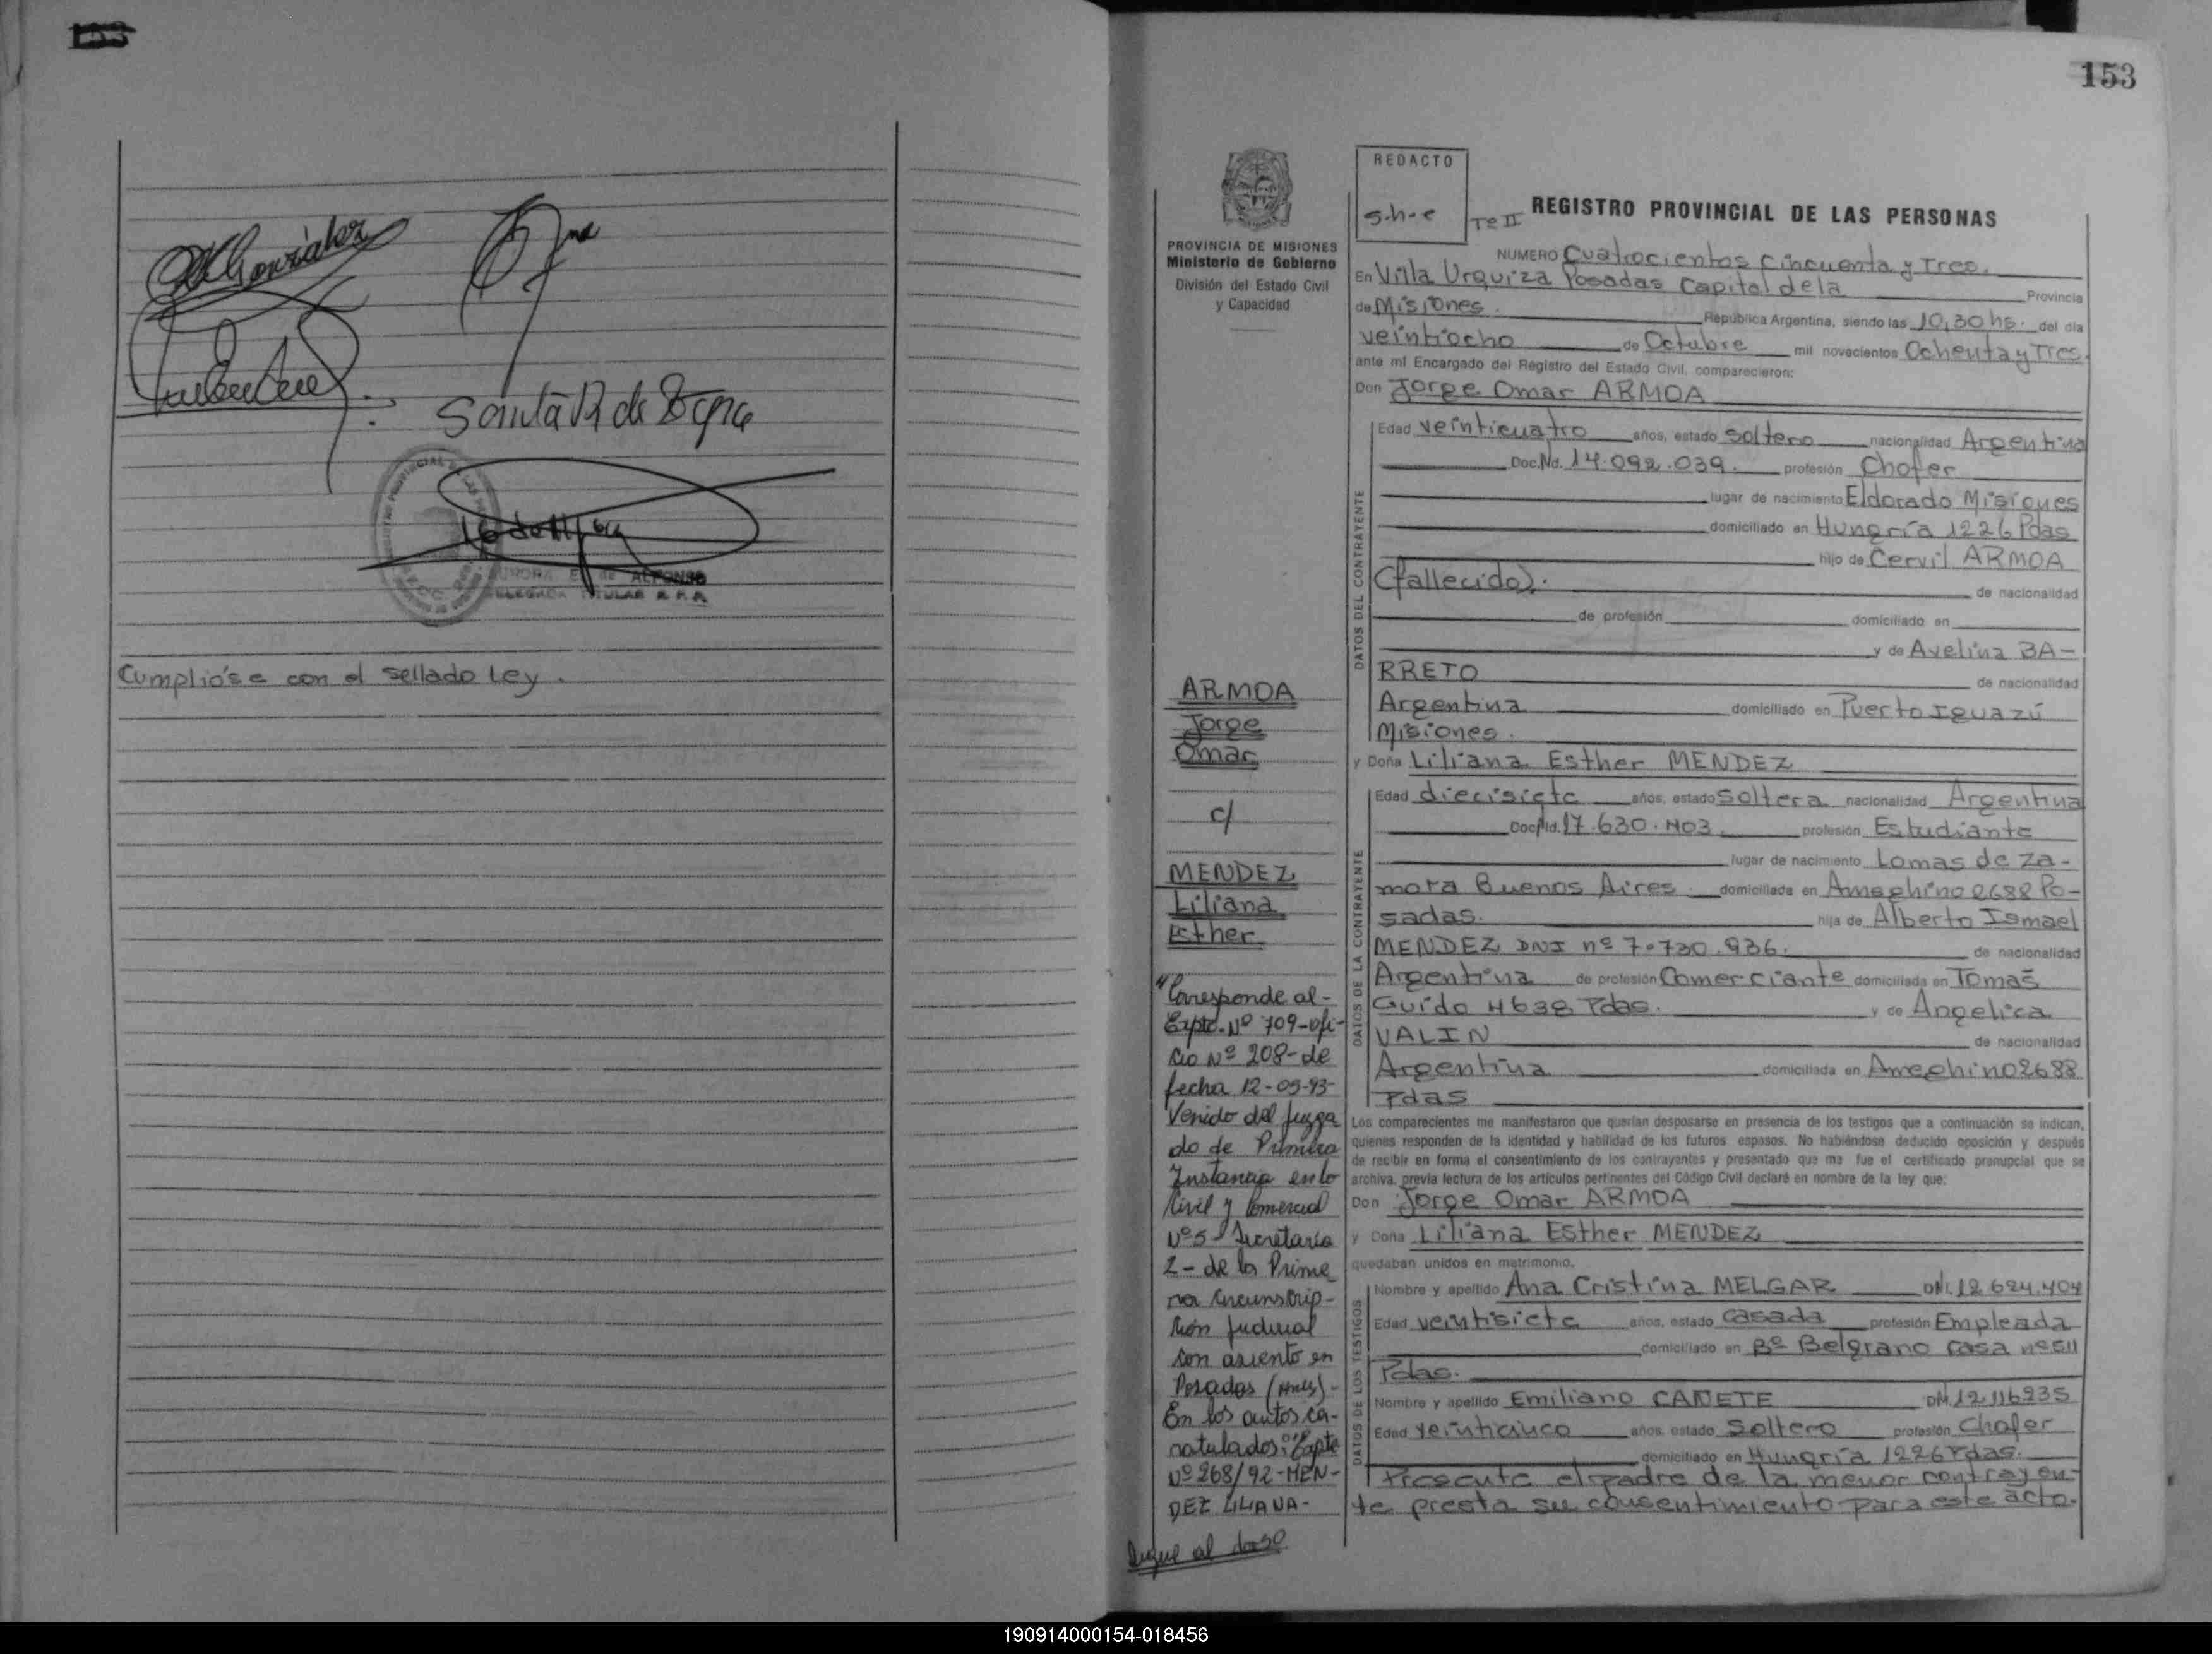 González
Santa R de
AURORA E. de ALFONSO
DELEGADA TITULAR R.P.P.
Cumplióse con el sellado Ley.
153
PROVINCIA DE MISIONES
Ministerio de Gobierno
División del Estado Civil
y Capacidad
ARMOA
Jorge
Omar
c/
MENDEZ
Liliana
Esther
"Corresponde al-
Expte. Nº 709-ofi-
cio Nº 208-de
fecha 12-05-93-
Venido del Juzga
do de Primera
Instancia en lo
Civil y Comercial
Nº5-Secretaría
2- de la Prime
ra Circunscrip-
ción Judicial
con asiento en
Posadas (Mnes)-
En los autos ca-
ratulados: "Expte
Nº 268/92-MEN-
DEZ LILIANA-
Sigue al dorso
REDACTO
s.h-e
Tº II
REGISTRO PROVINCIAL DE LAS PERSONAS
NUMERO Cuatrocientos Cincuenta y Tres.
En Villa Urquiza Posadas Capital de la Provincia
de Misiones. República Argentina, siendo las 10,30 hs. del día
veintiocho de Octubre mil novecientos Ochenta y Tres
ante mí Encargado del Registro del Estado Civil, comparecieron:
Don Jorge Omar ARMOA
DATOS DEL CONTRAYENTE
Edad veinticuatro años, estado soltero nacionalidad Argentina
Doc.Nd. 14.092.039. profesión Chofer
lugar de nacimiento Eldorado Misiones
domiciliado en Hungría 1226 Pdas
hijo de Cervil ARMOA
(fallecido). de nacionalidad
de profesión domiciliado en
y de Avelina BA-
RRETO de nacionalidad
Argentina domiciliado en Puerto Iguazú
Misiones.
y Doña Liliana Esther MENDEZ
DATOS DE LA CONTRAYENTE
Edad diecisiete años, estado soltera nacionalidad Argentina
Doc.Nd. 17.630.403 profesión Estudiante
lugar de nacimiento Lomas de Za-
mora Buenos Aires. domiciliada en Ameghino 2688 Po-
sadas. hija de Alberto Ismael
MENDEZ DNI nº 7.730.936. de nacionalidad
Argentina de profesión Comerciante domiciliada en Tomás
Guido 4638 Pdas. y de Angelica
VALIN de nacionalidad
Argentina domiciliada en Ameghino 2688
Pdas
Los comparecientes me manifestaron que querían desposarse en presencia de los testigos que a continuación se indican,
quienes responden de la identidad y habilidad de los futuros esposos. No habiéndose deducido oposición y después
de recibir en forma el consentimiento de los contrayentes y presentado que me fue el certificado prenupcial que se
archiva, previa lectura de los artículos pertinentes del Código Civil declaré en nombre de la ley que:
Don Jorge Omar ARMOA
y Doña Liliana Esther MENDEZ
quedaban unidos en matrimonio.
DATOS DE LOS TESTIGOS
Nombre y apellido Ana Cristina MELGAR DNI. 12.624.404
Edad veintisiete años, estado casada profesión Empleada
domiciliado en Bº Belgrano Casa nº 511
Pdas.
Nombre y apellido Emiliano CAÑETE DNI. 12.116235
Edad veinticinco años, estado soltero profesión Chofer
domiciliado en Hungría 1226 Pdas.
Presente el padre de la menor contrayen-
te presta su consentimiento para este acto.
190914000154-018456